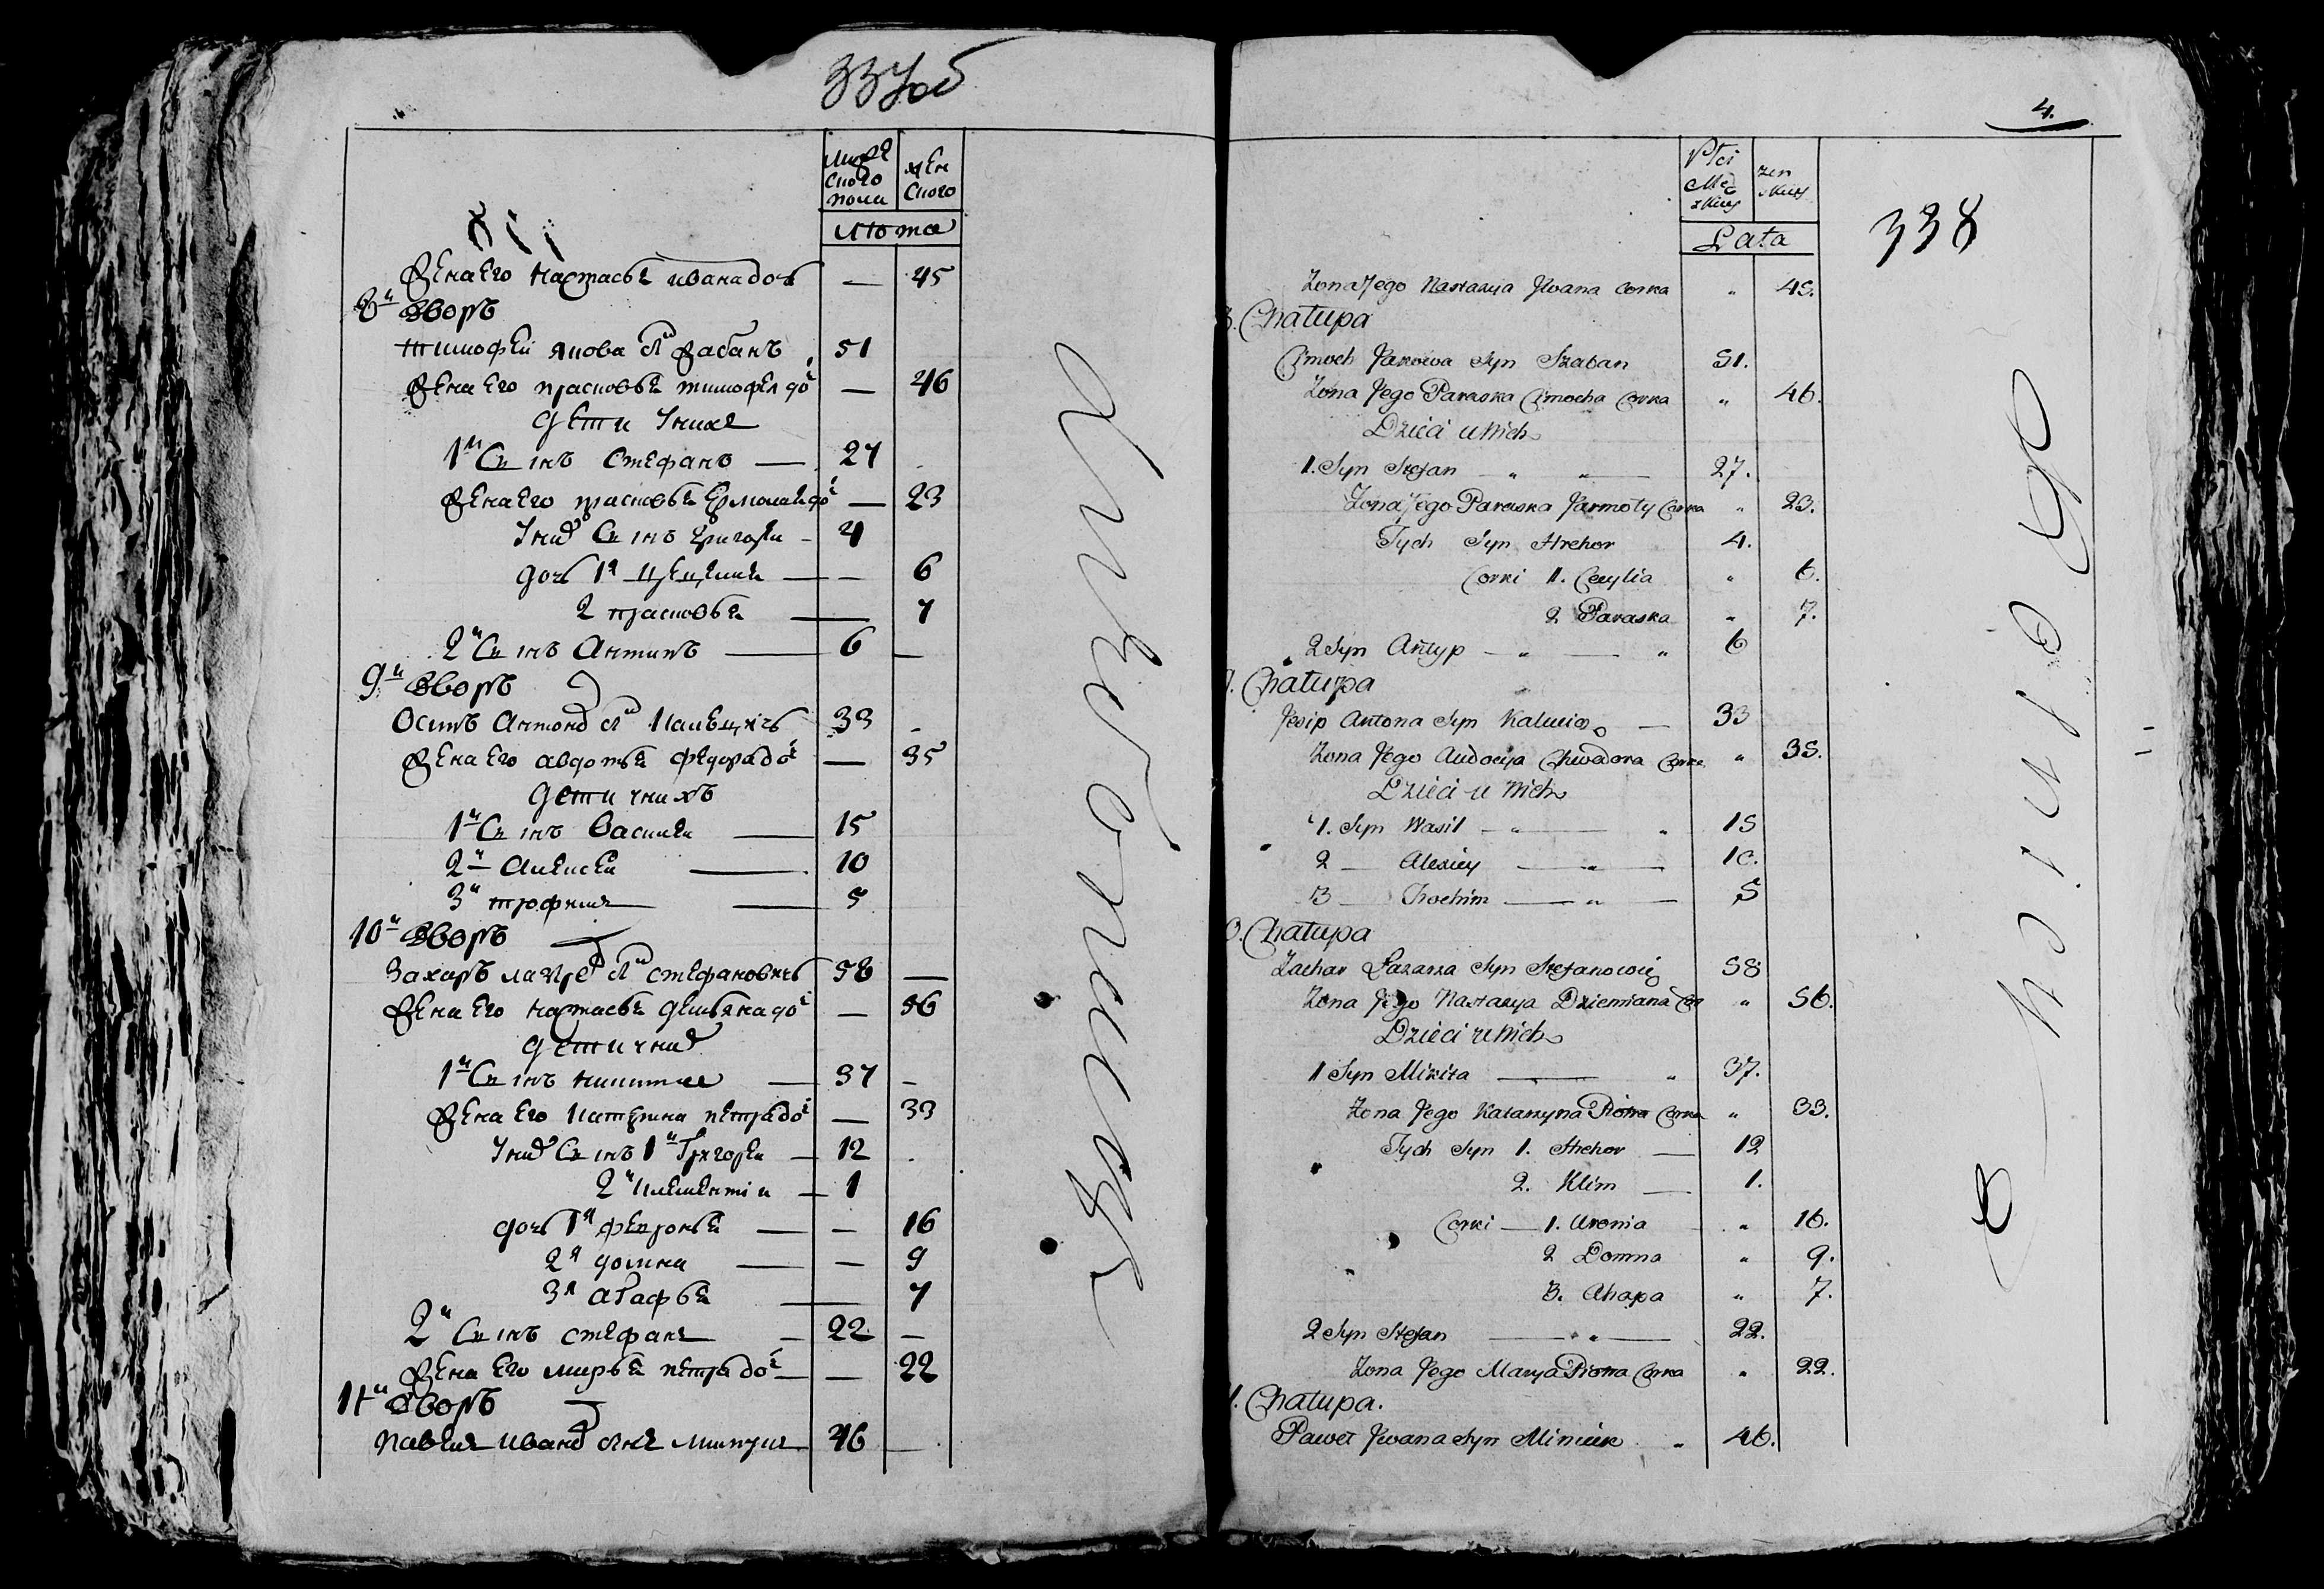 337об
Мужескаго пола
Женскаго
Лѣта
Жена его настасья Ивана дочь — 45
8й Дворъ
Тимофей якова сн Жабанъ 51
Жена его прасковья тимофея до — 46
дети у них
1й Сынъ Стефанъ — 27
Жена его прасковья Ермолая до — 23
у них Сынъ григорей — 4
дочь 1я цецилия — — 6
2 прасковья — 7
2й Сынъ Антипъ — 6 —
9й Дворъ
Осипъ Антона сн 33 -
Жена его авдотья федора до — 35
дети у нихъ
1й Сынъ Василей — 15
2й Алексей — 10
3й трофим — 5
10й Дворъ
Захаръ лазаря сн стефановичъ 58 —
Жена его настасья демьяна до — 56
дети у них
1й Сынъ никита — 37 -
Жена его катерина петра до — 33
у них Сынъ 1й Григорей — 12
2й клементий — 1
дочь 1я февронья — — 16
2я домна — — 9
3я агафья — 7
2й Сынъ стефан — 22 —
Жена его марья петра до — — 22
11й Дворъ
павел ивана сн 46 —
4.
338
Płci Męzkiey
żenskiey
Lata
Zona Jego Nastazya Jwana Corka „ 45.
8. Chałupa
Cimoch Jakowa Syn Szaban 51.
Zona Jego Paraska Cimocha Corka „ 46.
Dzieci u Nich
1. Syn Stefan — „ „ — 27.
Zona Jego Paraska Jarmoły Corka „ 23.
Tych Syn Hrehor 4.
Corki 1. Cecylia „ 6.
2 Paraska „ 7.
2 Syn Antyp — „ — „ 6
9. Chałupa
Josip Antona Syn — 33
Zona Jego Audocya Chwedora Corka „ 35.
Dzieci u Nich
1. Syn Wasil — „ — „ 15
2 — Alexiey — „ — 10.
3 — Trochim — „ — 5
10. Chałupa
Zachar Łazarza Syn Stefanowicz 58
Zona Jego Nastazya Dziemiana Cor „ 56.
Dzieci u Nich
1 Syn Mikita — „ 37.
Zona Jego Katarzyna Piotra Corka „ 33.
Tych Syn 1. Hrehor — 12
2. Klim — 1.
Corki — 1. Uronia „ 16.
2 Domna „ 9.
3. Ahapa „ 7.
2 Syn Stefan — „ — 22.
Zona Jego Marya Piotra Corka „ 22.
11. Chałupa.
Paweł Jwana Syn „ 46.